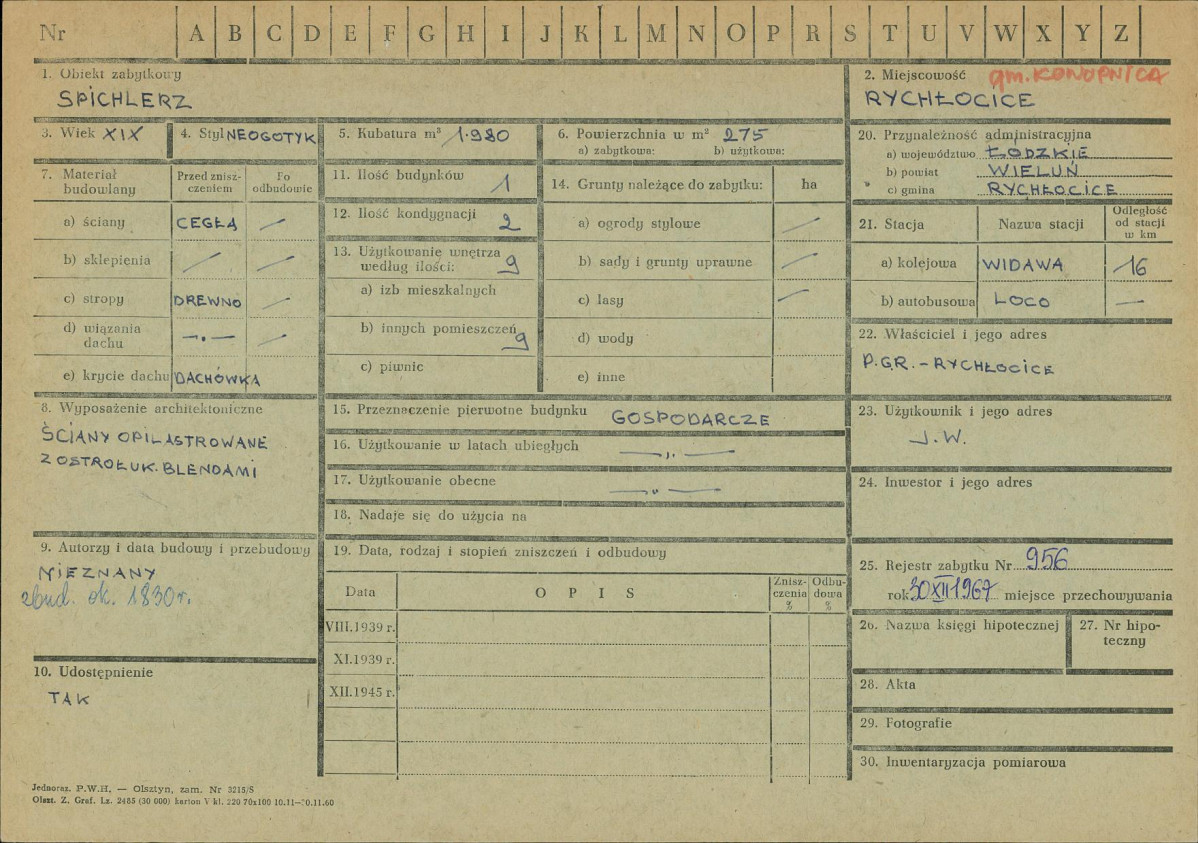 Nr A B C D E F G H I J K L M N O P R S T U V W X Y Z
1. Obiekt zabytkowy
SPICHLERZ
2. Miejscowość gm. KONOPNICA
RYCHŁOCICE
3. Wiek XIX
4. Styl NEOGOTYK
5. Kubatura m³ 1.980
6. Powierzchnia w m² 275
a) zabytkowa: b) użytkowa:
20. Przynależność administracyjna
a) województwo ŁODZKIE
b) powiat WIELUŃ
c) gmina RYCHŁOCICE
7. Materiał budowlany
Przed znisz-
czeniem
Po
odbudowie
a) ściany CEGŁA —
b) sklepienia — —
c) stropy DREWNO —
d) wiązania
dachu —„— —
e) krycie dachu DACHÓWKA
11. Ilość budynków 1
12. Ilość kondygnacji 2
13. Użytkowanie wnętrza
według ilości: 9
a) izb mieszkalnych
b) innych pomieszczeń 9
c) piwnic
14. Grunty należące do zabytku: ha
a) ogrody stylowe —
b) sady i grunty uprawne —
c) lasy —
d) wody
e) inne
21. Stacja Nazwa stacji
Odległość
od stacji
w km
a) kolejowa WIDAWA 16
b) autobusowa LOCO —
22. Właściciel i jego adres
P.G.R. - RYCHŁOCICE
8. Wyposażenie architektoniczne
ŚCIANY OPILASTROWANE
Z OSTROŁUK. BLENDAMI
15. Przeznaczenie pierwotne budynku GOSPODARCZE
16. Użytkowanie w latach ubiegłych —„—
17. Użytkowanie obecne —„—
18. Nadaje się do użycia na
23. Użytkownik i jego adres
J.W.
24. Inwestor i jego adres
9. Autorzy i data budowy i przebudowy
NIEZNANY
zbud. ok. 1830 r.
10. Udostępnienie
TAK
19. Data, rodzaj i stopień zniszczeń i odbudowy
Data OPIS
Znisz-
czenia
%
Odbu-
dowa
%
VIII.1939 r.
XI.1939 r.
XII.1945 r.
25. Rejestr zabytku Nr 956
rok 30 XII 1967 miejsce przechowywania
26. Nazwa księgi hipotecznej
27. Nr hipo-
teczny
28. Akta
29. Fotografie
30. Inwentaryzacja pomiarowa
Jednoraz. P.W.H. — Olsztyn, zam. Nr 3215/S
Olszt. Z. Graf. Lz. 2485 (30 000) karton V kl. 220 70x100 10.11—0.11.60